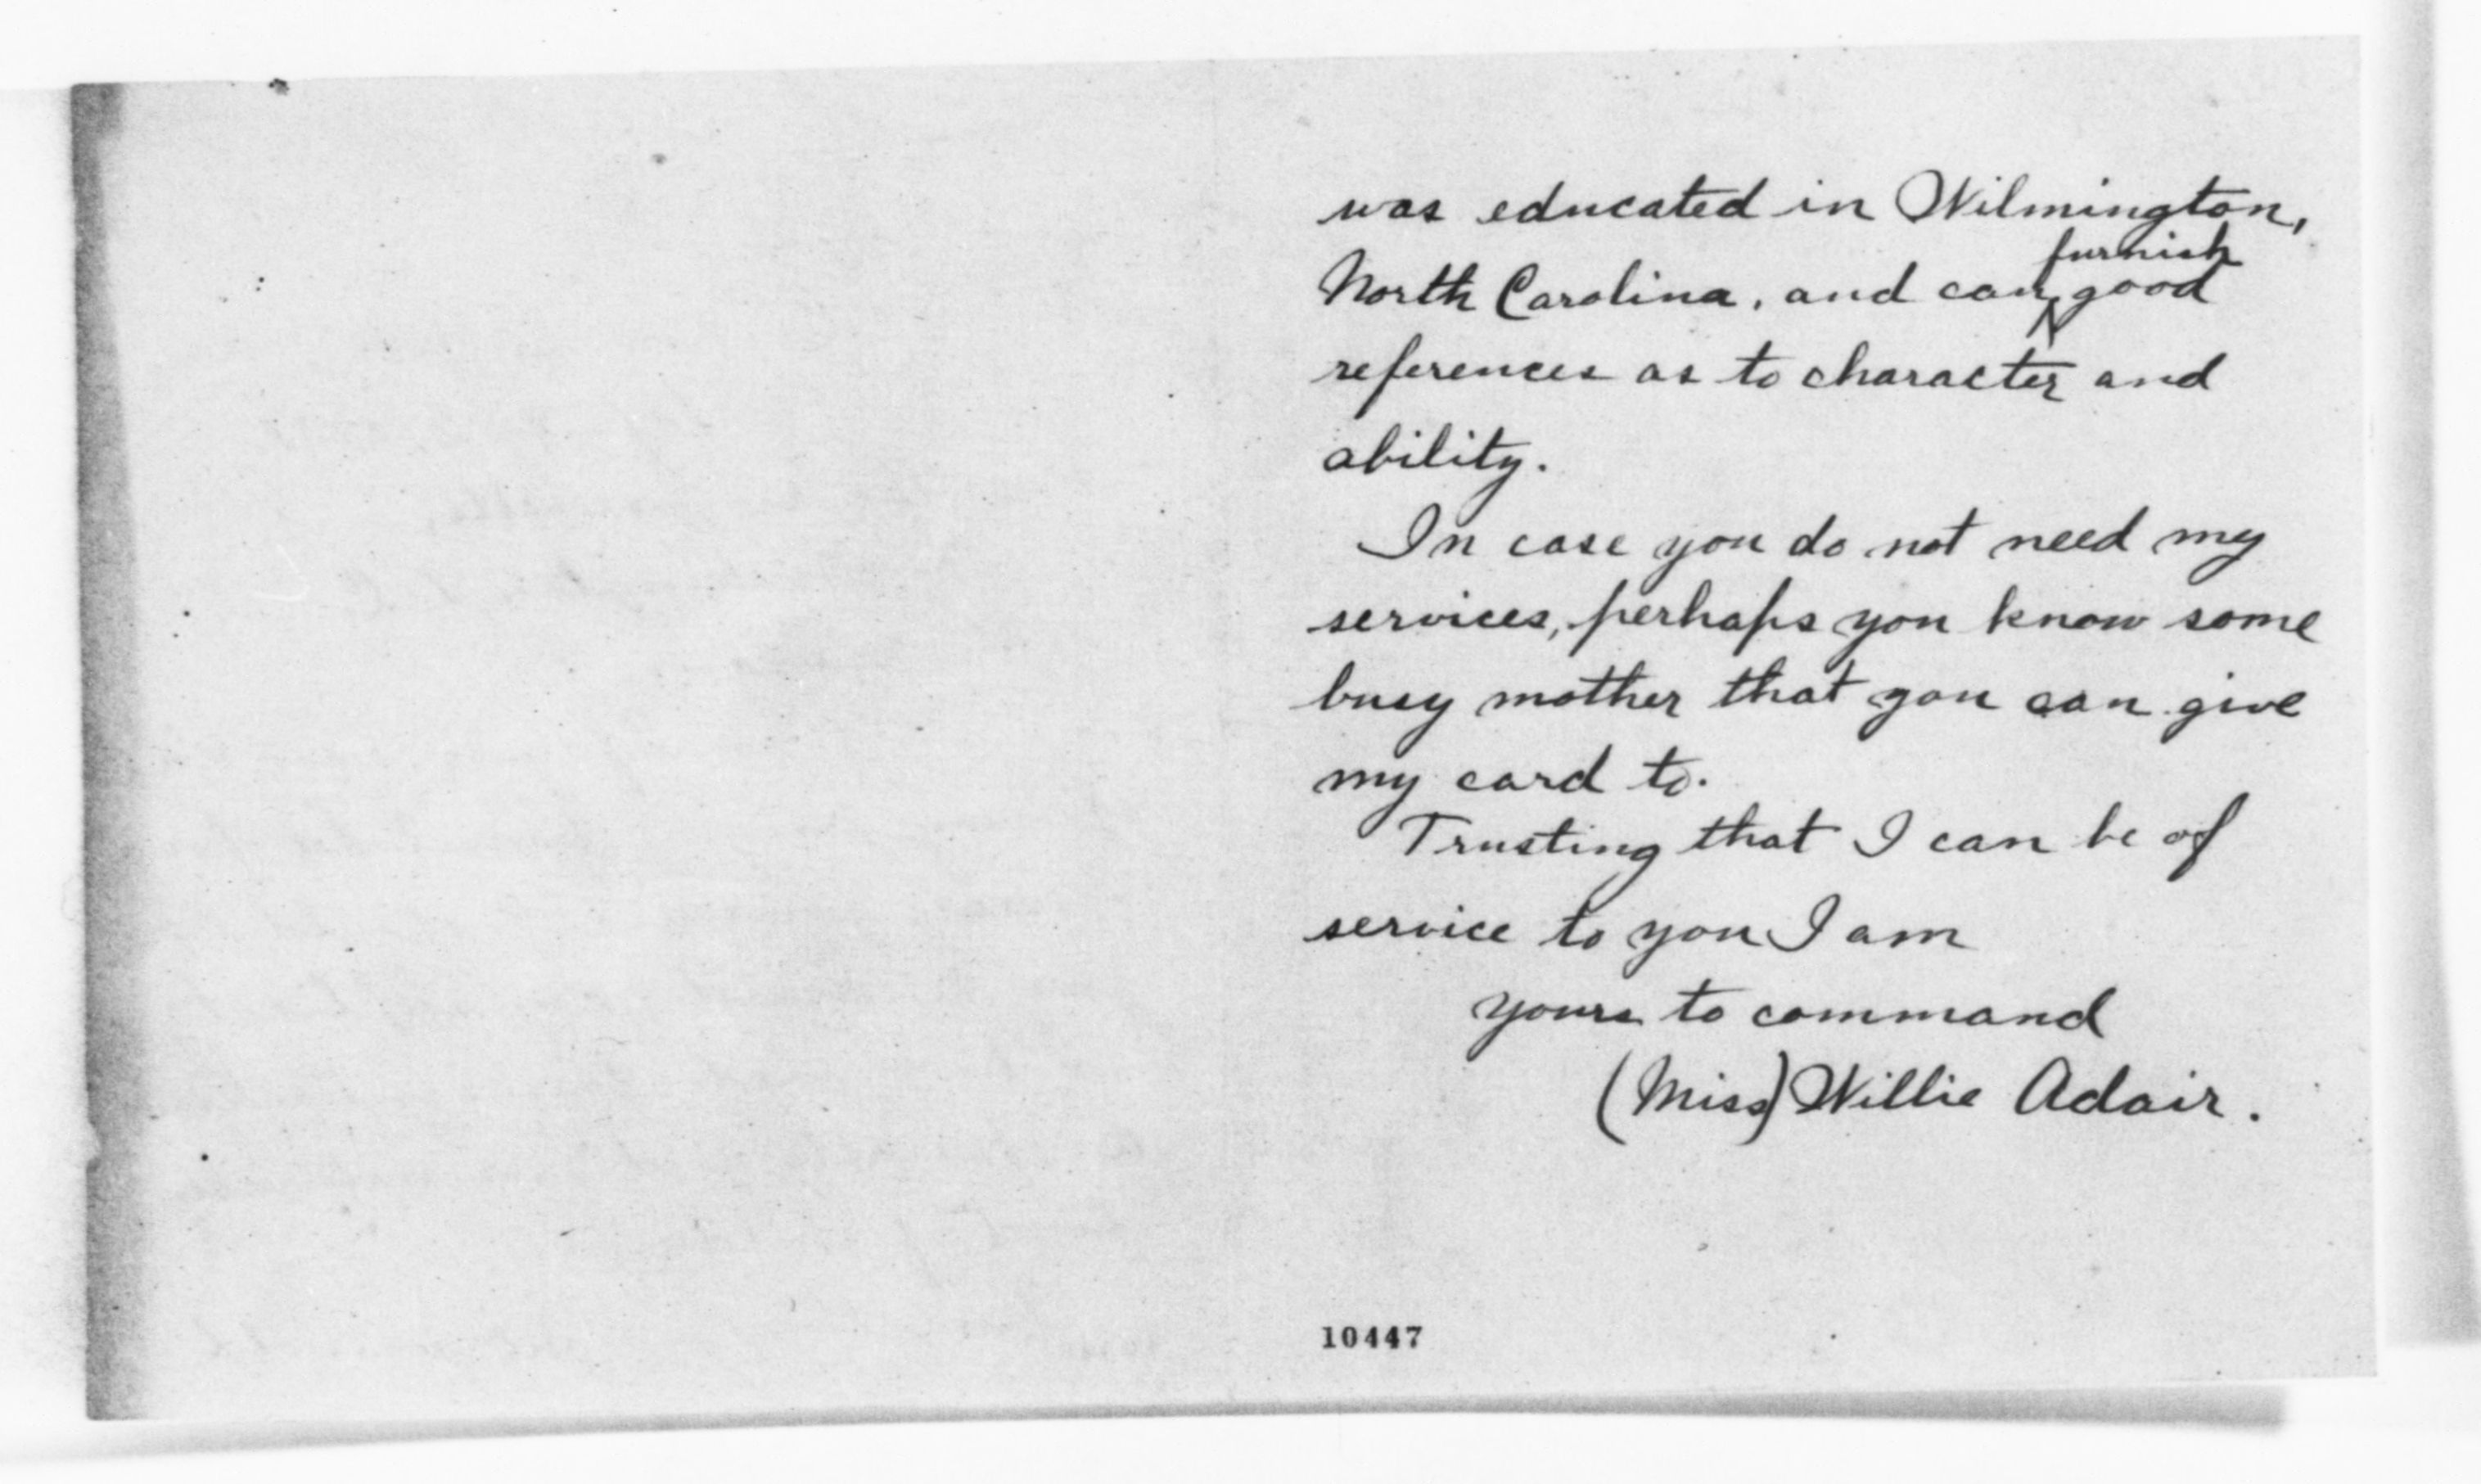 was educated in Wilmington,
furnish
North Carolina, and can good
references as to character and
ability.
In case you do not need my
services, perhaps you know some
busy mother that you can give
my card to.
Trusting that I can be of
service to you I am
yours to command
(Miss) Willie Adair.
10447